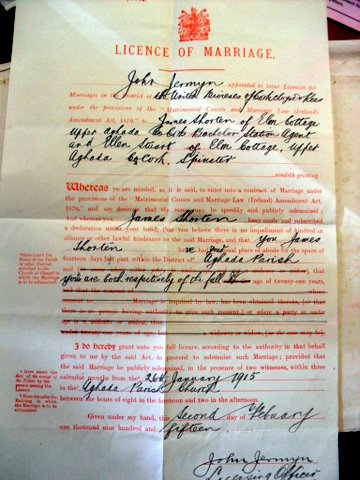 LICENCE OF MARRIAGE.
John Jermyn appointed to issue Licences for
Marriages in the District of the United Dioceses of Cork Cloyne & Ross
under the provisions of the "Matrimonial Causes and Marriage Law (Ireland)
Amendment Act, 1870," to James Shorten of Elm Cottage
Upper Aghada Co Cork Bachelor Station Agent
and Ellen Stuart of Elm Cottage, Upper
Aghada Co Cork, Spinster
sendeth greeting:
Whereas ye are minded, as is said, to enter into a contract of Marriage under
the provisions of the "Matrimonial Causes and Marriage Law (Ireland) Amendment Act,
1870," and are desirous that the same may be speedily and publicly solemnized:
And whereas you James Shorten have made and subscribed
a declaration under your hand, that you believe there is no impediment of kindred or
alliance or other lawful hindrance to the said Marriage, and that you James
Shorten have had your usual place of abode for the space of
fourteen days last past within the District of Aghada Parish
you are both respectively of the full age of twenty-one years,
I do hereby grant unto you full licence, according to the authority in that behalf
given to me by the said Act, to proceed to solemnize such Marriage; provided that
the said Marriage be publicly solemnized, in the presence of two witnesses, within three
calendar months from the 26th January 1915
in the Aghada Parish Church
between the hours of eight in the forenoon and two in the afternoon.
Given under my hand, this Second day of February
one thousand nine hundred and fifteen
John Jermyn
Licensing Officer